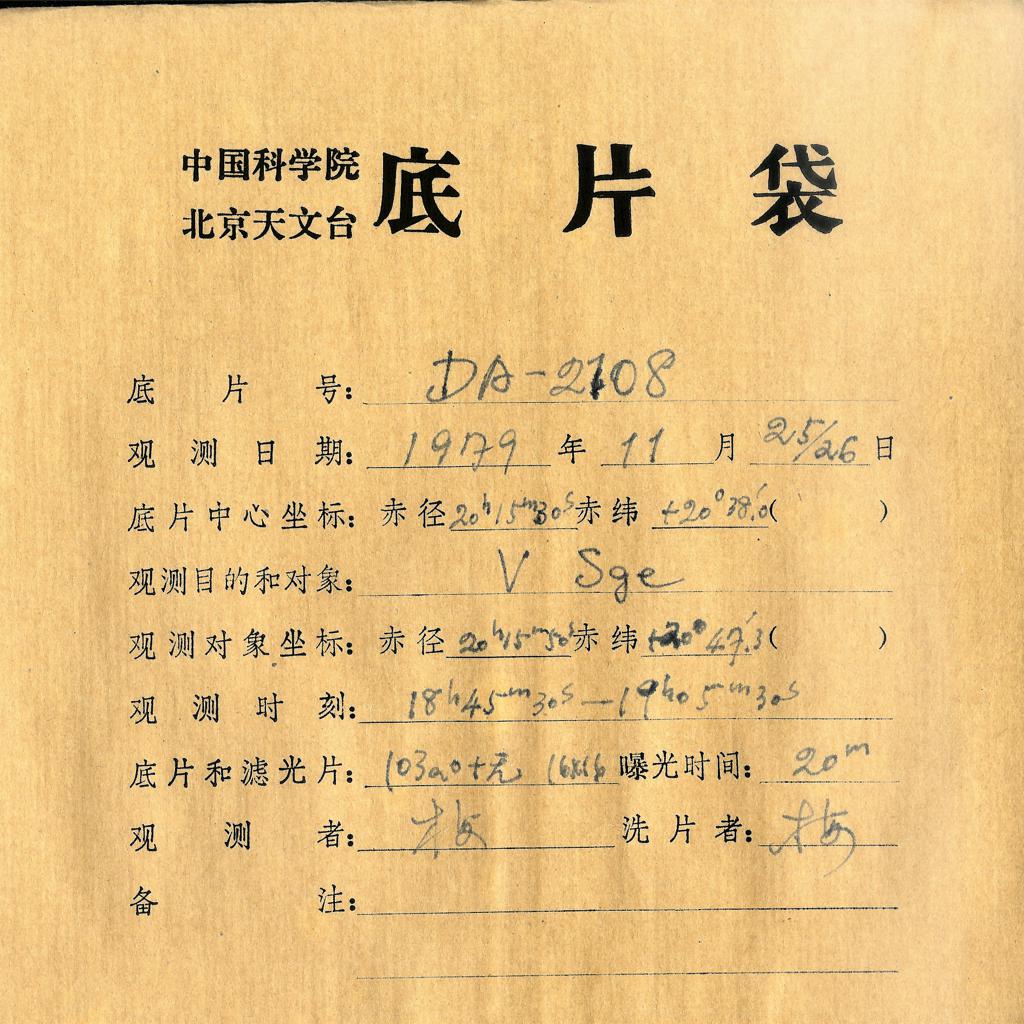 中国科学院
北京天文台
底片袋
底片号: DA-2108
观测日期: 1979年11月25/26日
底片中心坐标: 赤径20h15m30s赤纬+20°38.'0( )
观测目的和对象: V Sge
观测对象坐标: 赤径20h15m50s赤纬+20°47.'3( )
观测时刻: 18h45m30s—19h05m30s
底片和滤光片: 103aO+无 16x16 曝光时间: 20m
观测者: 梅 洗片者: 梅
备注: